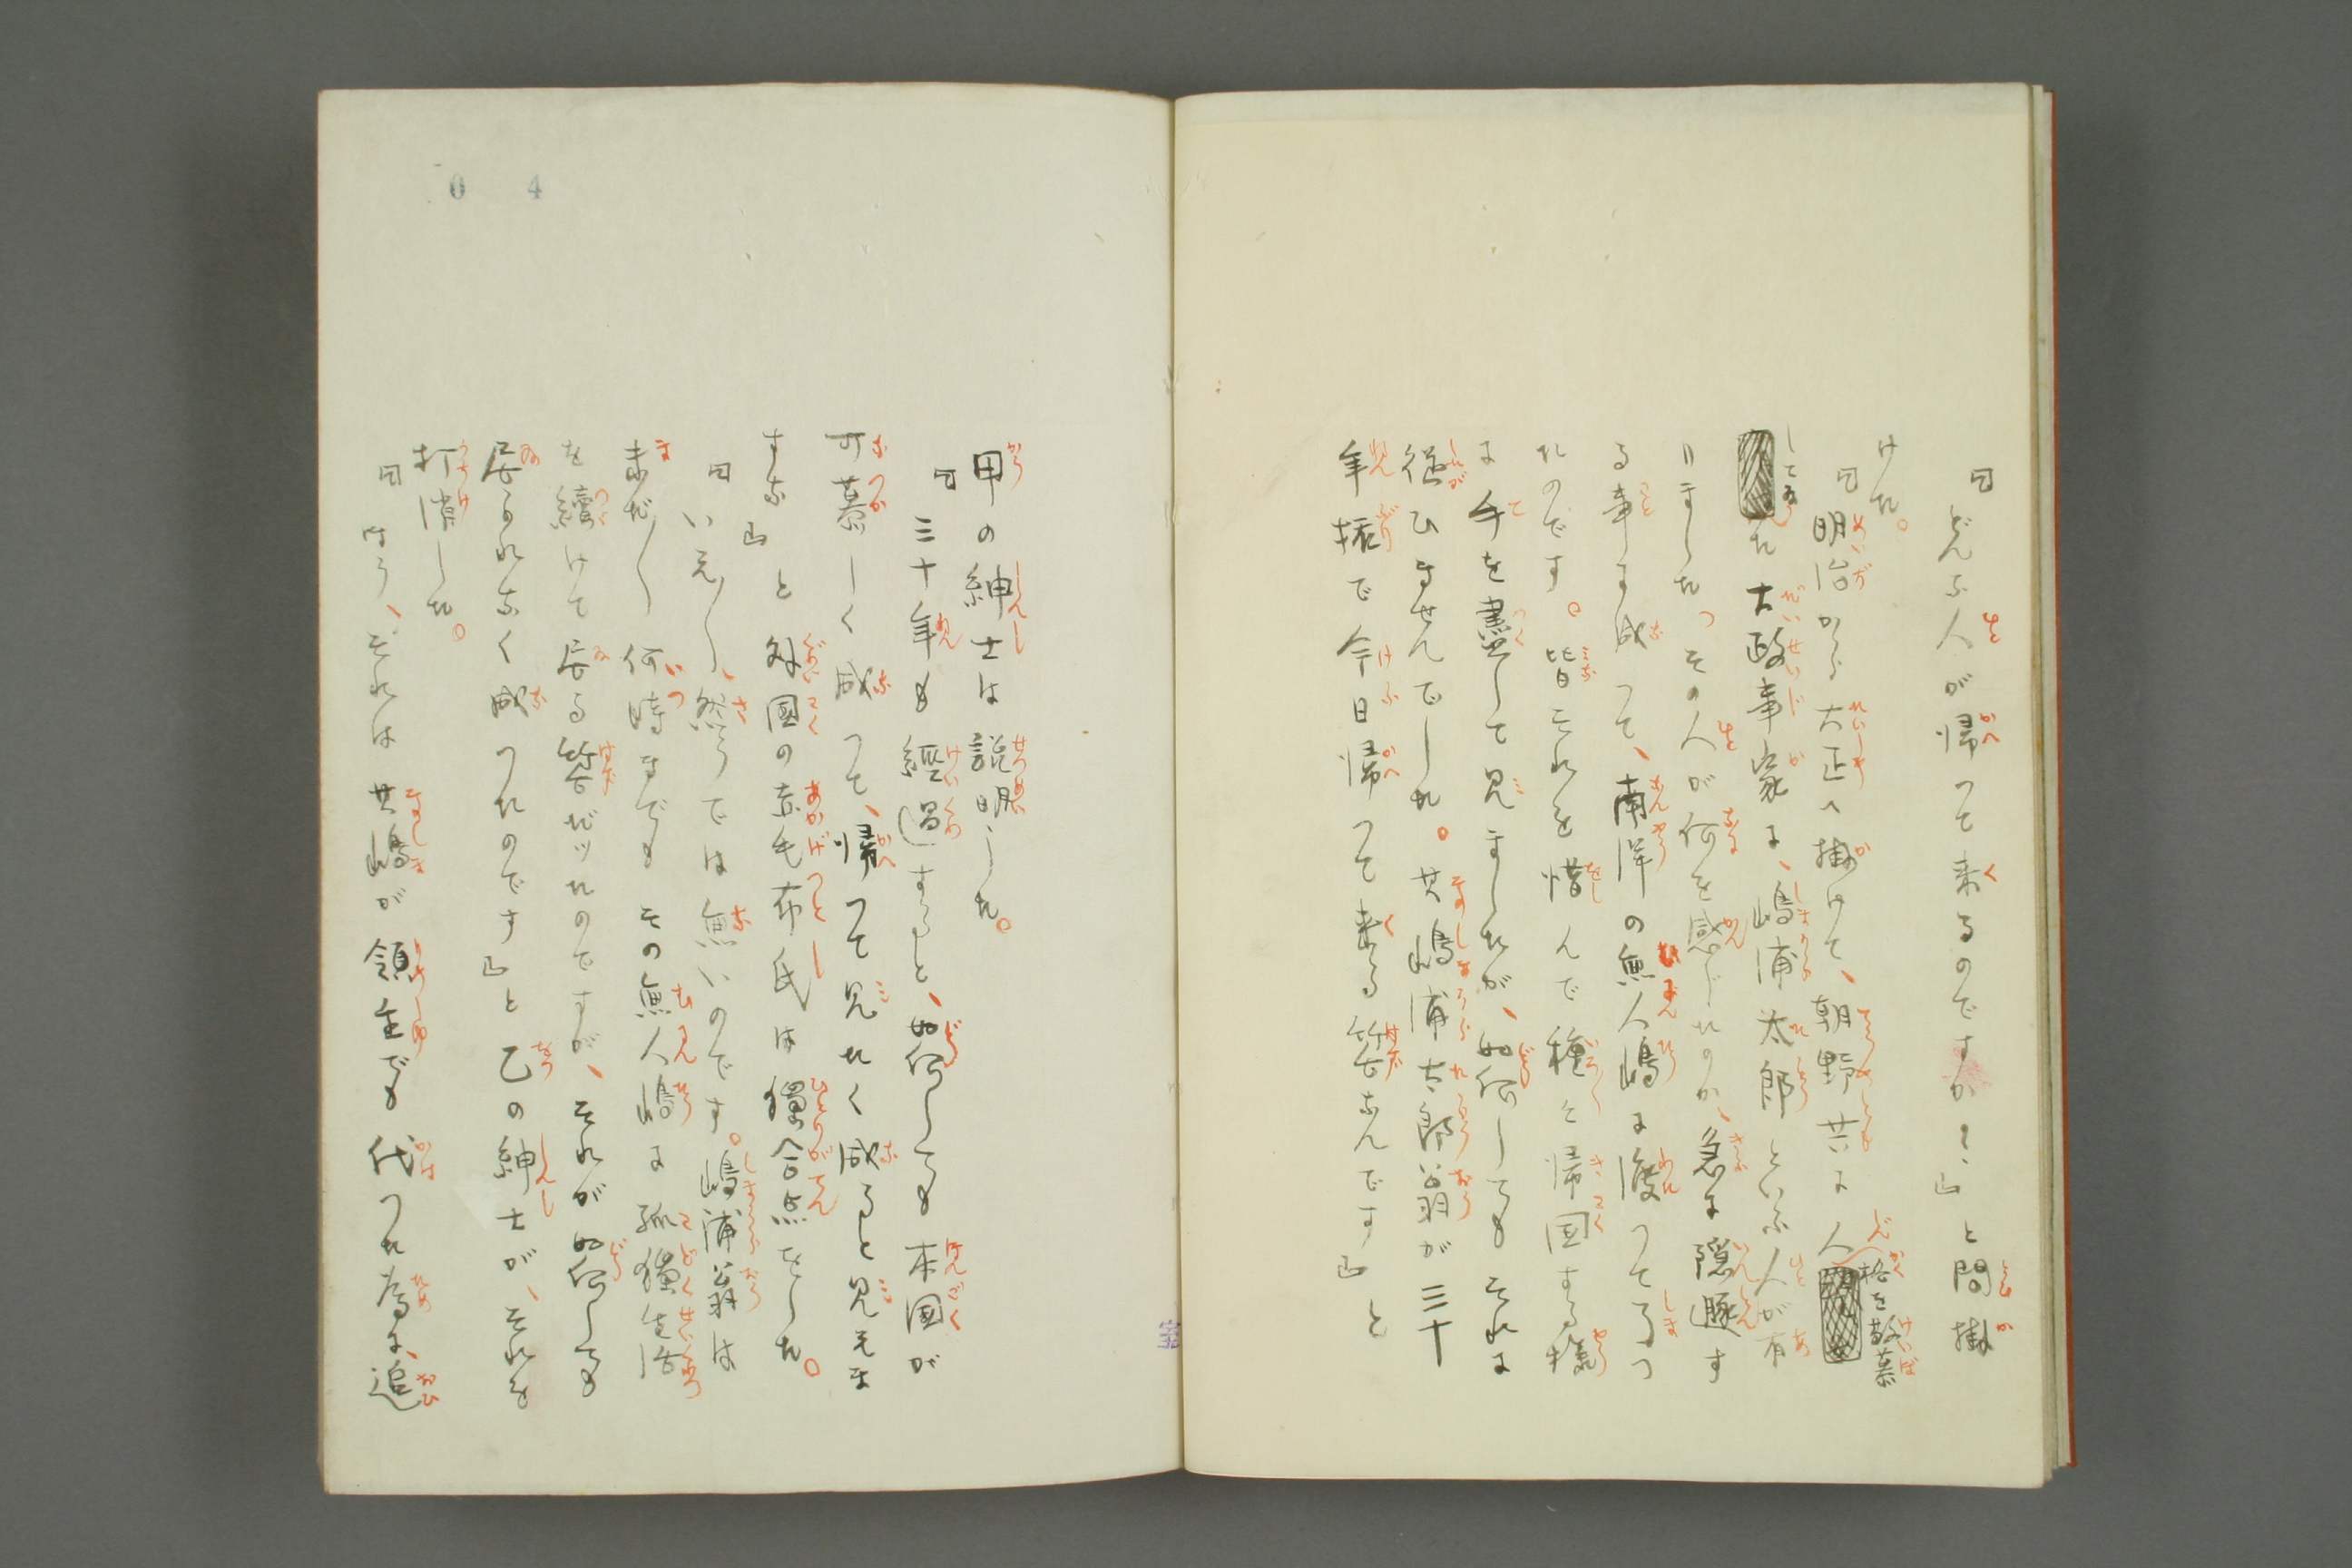 『どんな人が帰つて来るのですか!?』と問掛
けた。
『明治から大正へ掛けて、朝野共に人格を敬慕
してゐた大政事家に、嶋浦太郎といふ人が有
りました。その人が何を感じたのか、急に隠遯す
る事に成つて、南洋の無人嶋に渡つてしまつ
たのです。皆それを惜んで種々と帰国する様
に手を盡して見ましたが、如何してもそれに
従ひませんでした。其嶋浦太郎翁が三十
年振で今日帰つて来る筈なんです』と
甲の紳士は説明した。
『三十年も經過すると、如何しても本国が
可慕しく成つて、帰つて見たく成ると見えま
すな』と外國の赤毛布氏は獨合点をした。
『いえ〳〵、然うでは無いのです。嶋浦翁は
未だ〳〵何時までもその無人嶋に孤獨生活
を續けて居る筈だッたのですが、それが如何しても
居られなく成つたのです』と乙の紳士が、それを
打消した。
『はう、それは其嶋が領主でも代つた為に、追
04